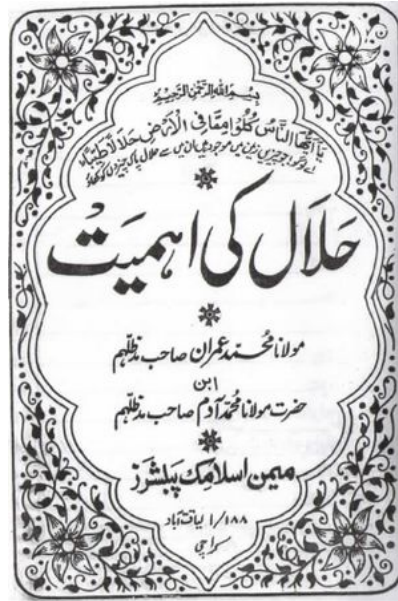 بِسْمِ اللهِ الرَّحْمٰنِ الرَّحِيْمِ
يَا اَيُّهَا النَّاسُ كُلُوْا مِمَّا فِي الْاَرْضِ حَلَالًا طَيِّبًا
اے لوگو! جو چیزیں زمین میں موجود ہیں ان میں سے حلال پاک چیزوں کو کھاؤ
حَلال کی اہمیت
مولانا محمّد عمران صاحب مدظلہم
ابن
حضرت مولانا محمّد آدم صاحب مدظلہم
میمن اسلامک پبلشرز
۱۸۸/۱ لیاقت آباد
کراچی